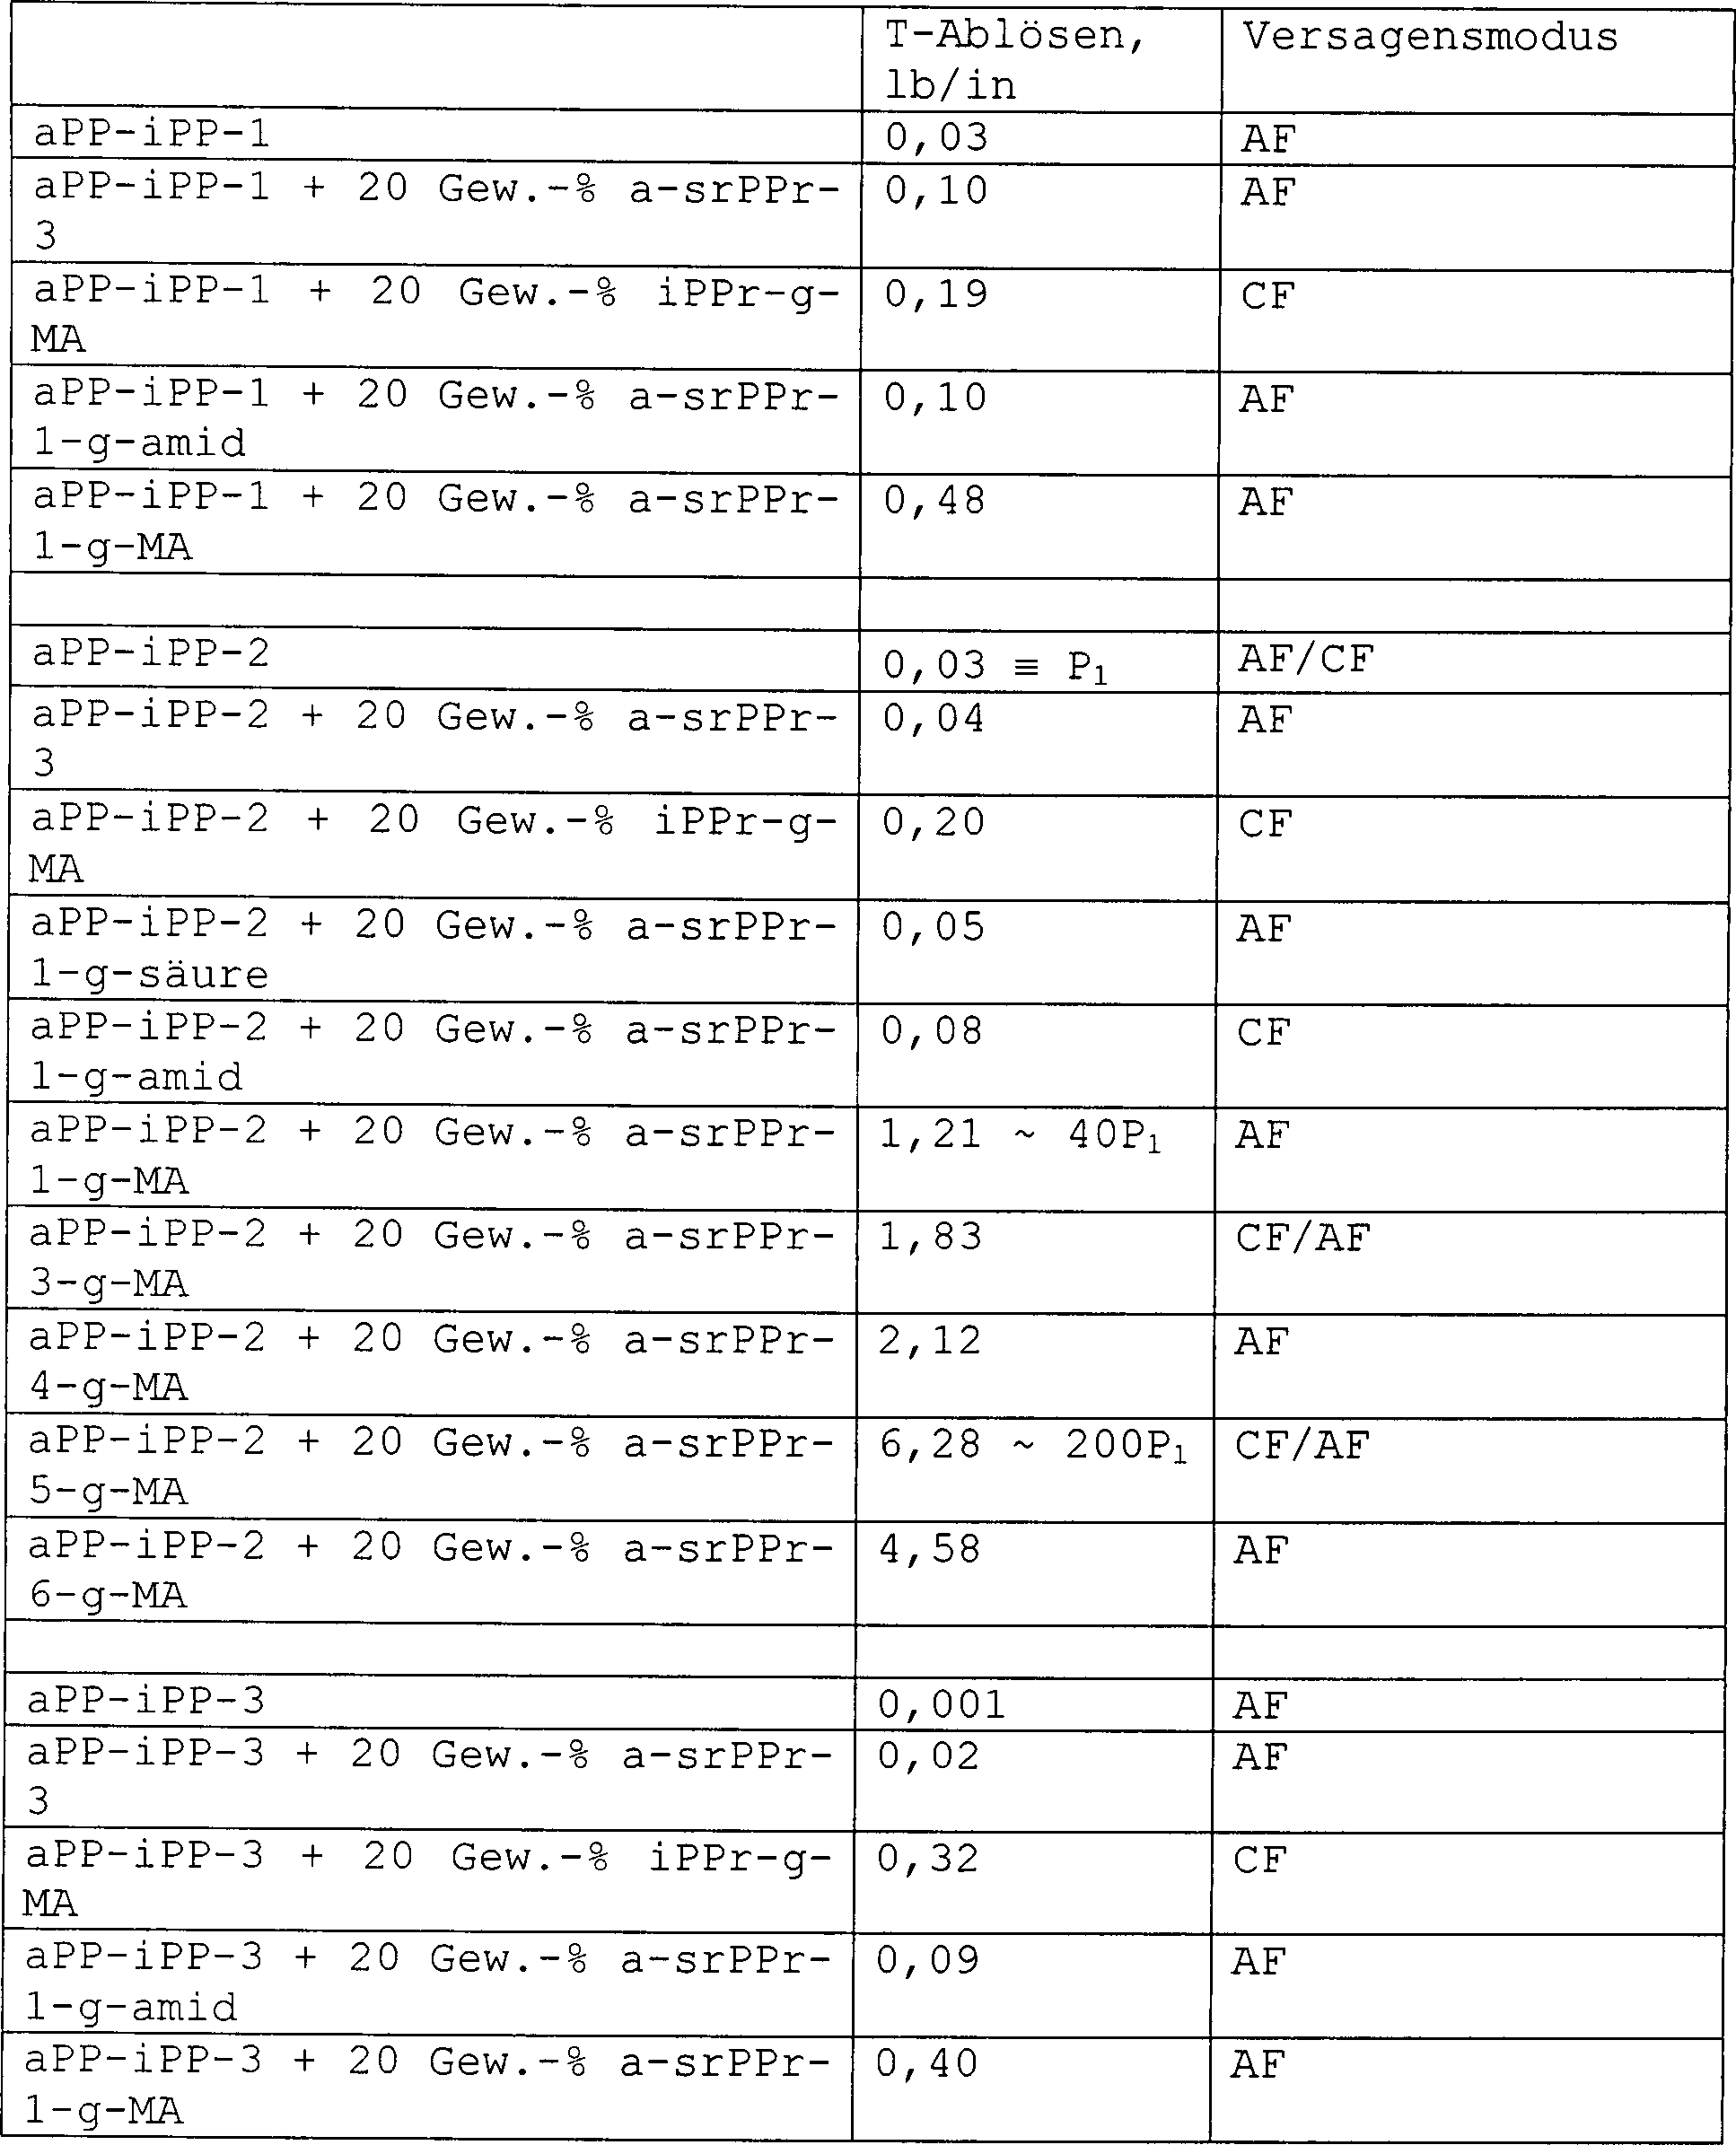 T-Ablösen, Versagensmodus
lb/in
aPP-iPP-1 0,03 AF
aPP-iPP-1 + 20 Gew.-% a-srPPr- 0,10 AF
3
aPP-iPP-1 + 20 Gew.-% iPPr-g- 0,19 CF
MA
aPP-iPP-1 + 20 Gew.-% a-srPPr- 0,10 AF
1-g-amid
aPP-iPP-1 + 20 Gew.-% a-srPPr- 0,48 AF
1-g-MA
aPP-iPP-2 0,03 ≡ P₁ AF/CF
aPP-iPP-2 + 20 Gew.-% a-srPPr- 0,04 AF
3
aPP-iPP-2 + 20 Gew.-% iPPr-g- 0,20 CF
MA
aPP-iPP-2 + 20 Gew.-% a-srPPr- 0,05 AF
1-g-säure
aPP-iPP-2 + 20 Gew.-% a-srPPr- 0,08 CF
1-g-amid
aPP-iPP-2 + 20 Gew.-% a-srPPr- 1,21 ~ 40P₁ AF
1-g-MA
aPP-iPP-2 + 20 Gew.-% a-srPPr- 1,83 CF/AF
3-g-MA
aPP-iPP-2 + 20 Gew.-% a-srPPr- 2,12 AF
4-g-MA
aPP-iPP-2 + 20 Gew.-% a-srPPr- 6,28 ~ 200P₁ CF/AF
5-g-MA
aPP-iPP-2 + 20 Gew.-% a-srPPr- 4,58 AF
6-g-MA
aPP-iPP-3 0,001 AF
aPP-iPP-3 + 20 Gew.-% a-srPPr- 0,02 AF
3
aPP-iPP-3 + 20 Gew.-% iPPr-g- 0,32 CF
MA
aPP-iPP-3 + 20 Gew.-% a-srPPr- 0,09 AF
1-g-amid
aPP-iPP-3 + 20 Gew.-% a-srPPr- 0,40 AF
1-g-MA